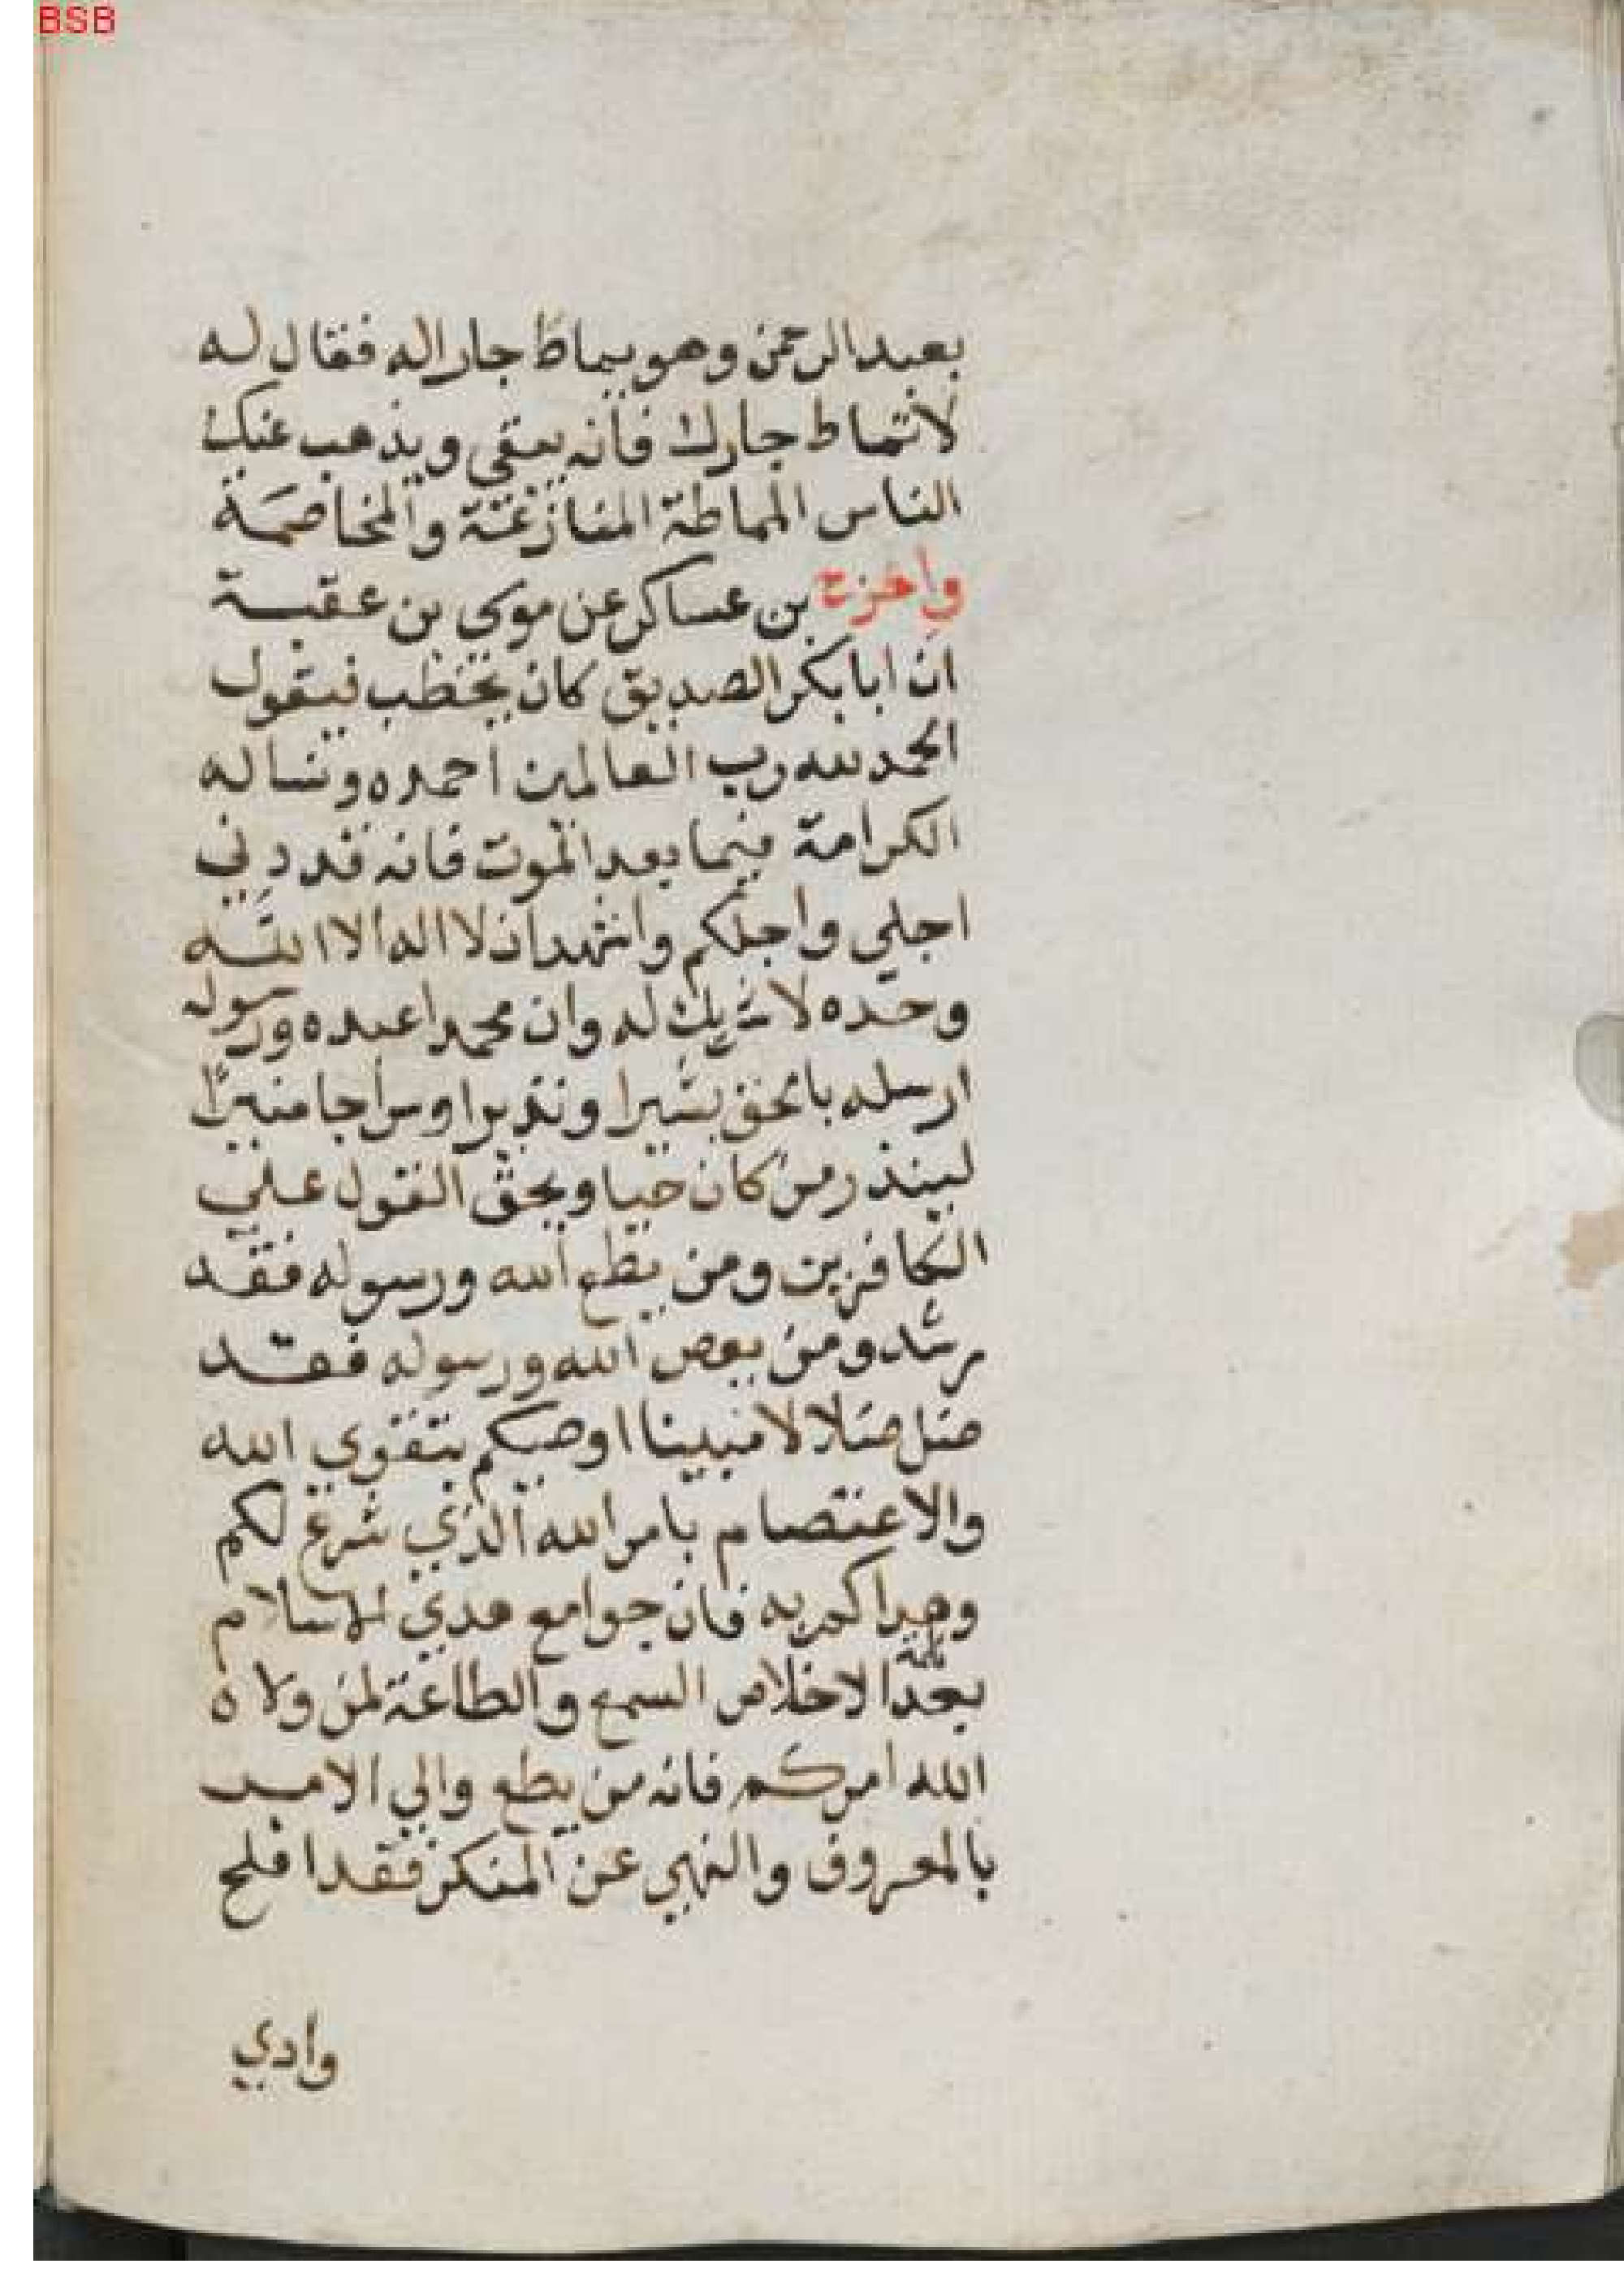 BSB
بعبد الرحمن وهو يماط جارا له فقال له
لا تماط جارك فانه يبقى ويذهب عنك
الناس المماطة المنازعة والمخاصمة
واخرج بن عساكر عن موسي بن عقبة
ان ابا بكر الصديق كان يخطب فيقول
الحمد لله رب العالمين احمده ونساله
الكرامة فيما بعد الموت فانه قد دني
اجلي واجلكم واشهد ان لا اله الا الله
وحده لا شريك له وان محمدا عبده ورسوله
ارسله بالحق بشيرا ونذيرا وسراجا منيرا
لينذر من كان حيا ويحق القول علي
الكافرين ومن يطع الله ورسوله فقد
رشد ومن يعص الله ورسوله فقد
ضل ضلالا مبينا اوصيكم بتقوي الله
والاعتصام بامر الله الذي شرع لكم
وهداكم به فان جوامع هدي الاسلام
بعد كلمة الاخلاص السمع والطاعة لمن ولاه
الله امركم فانه من يطع والي الامر
بالمعروف والنهي عن المنكر فقد افلح
وادي